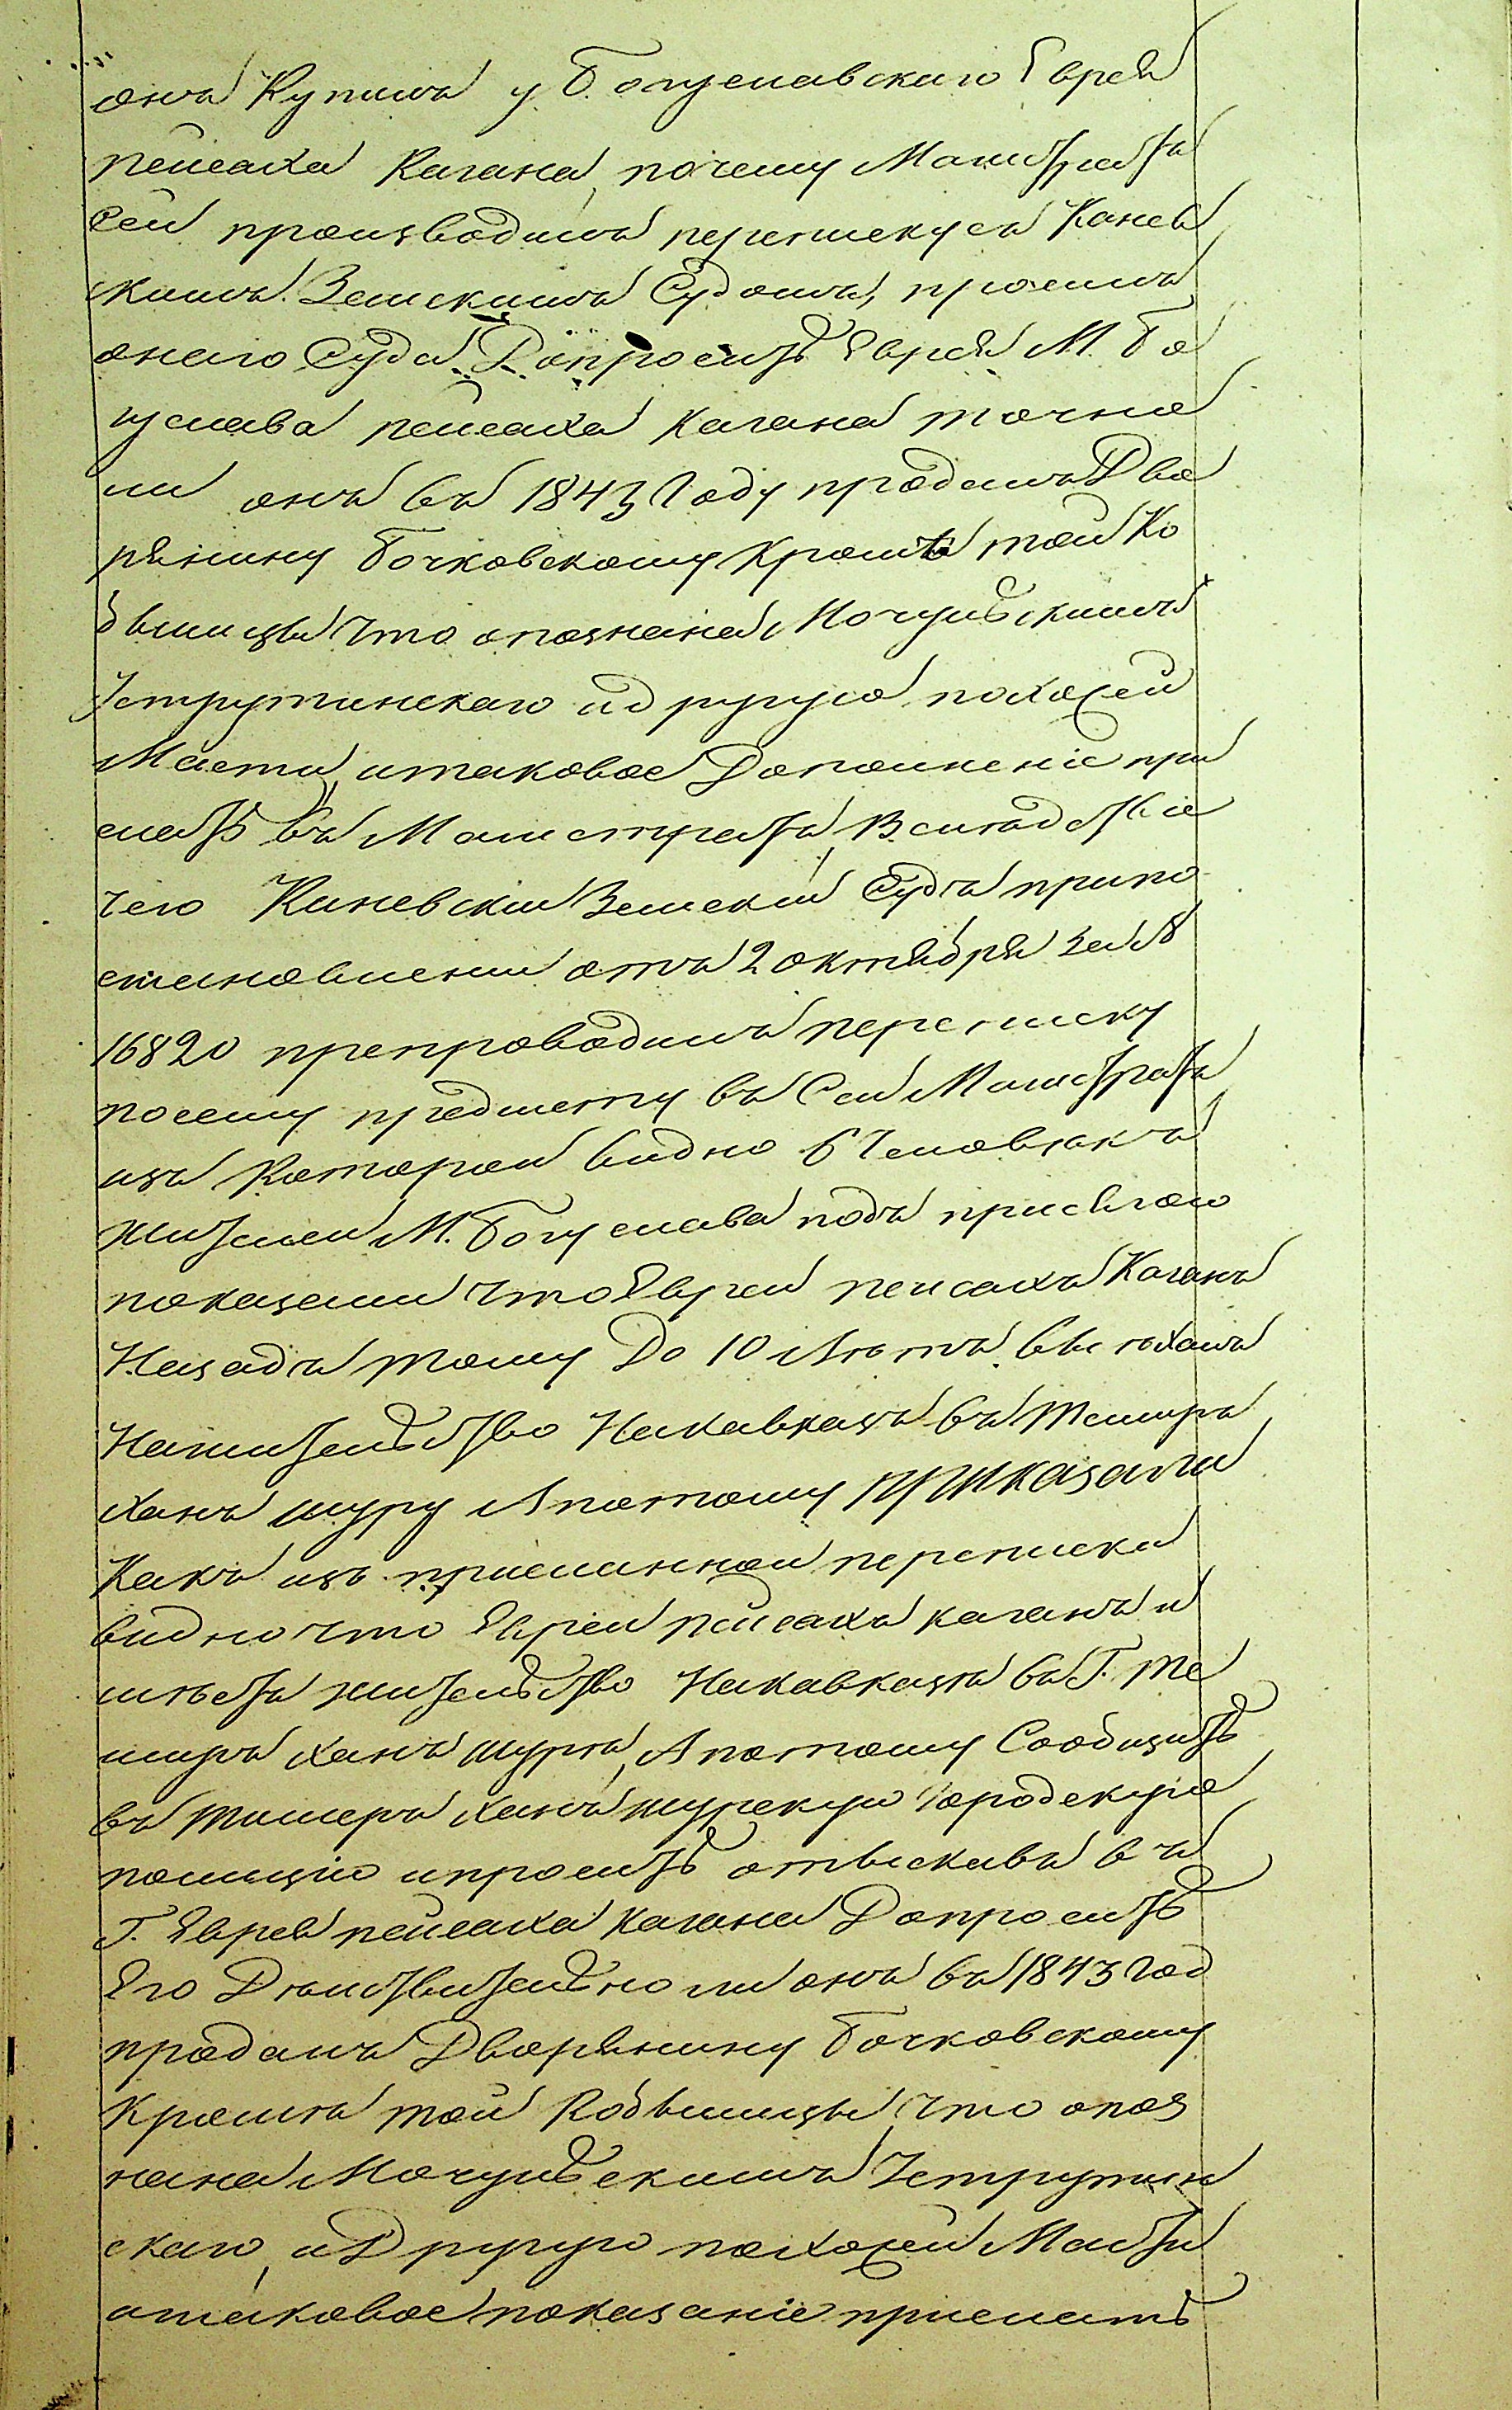 онъ Купилъ у Богуславскаго Еврея
пейсаха Кагана, почему Магистратъ
Сей производилъ переписку съ Каневс
кимъ Земскимъ Судомъ, просилъ
онаго Суда Допросить Еврея М. Бо
гуслава пейсаха Кагана точно
ли онъ въ 1843 Году продалъ Дво
рянину Бочковскому Кромѣ той Ко
былицы что опознана Мочульскимъ
Уструтинскаго и другую похожей
Масти, итаковое Дополненіе при
слать въ Магистратъ, Вслѣдствіе
чего Каневскій Земскій Судъ припо
становленіи отъ 2 октября за №
16820 препроводилъ переписку
посему предмету въ Сей Магистратъ
изъ Которой видно 6 Человѣкъ
жителей М. Богуслава подъ присягою
показали что Еврей пейсахъ Каганъ
Назадъ тому До 10 Лѣтъ выѣхалъ
Нажительство Накавказъ въ Темиръ
Ханъ шуру Апотому приказали
Какъ изъ присланной переписки
видно что Еврей пейсахъ каганъ и
мѣетъ жительство Накавказѣ въ Г. Те
миръ Ханъ шурѣ, Апотому Сообщить
въ Тимеръ Ханъ шурскую Городскую
полицію ипросить отыскавъ въ
Г. Еврея пейсаха Кагана Допросить
Его Дѣйствительно ли онъ въ 1843 год
продалъ Дворянину Бочковскому
Кромѣ той Кобылицы, что опоз
нана Мочульскимъ Уструтин
скаго, и Другую похожей Масти
итаковое показаніе прислать